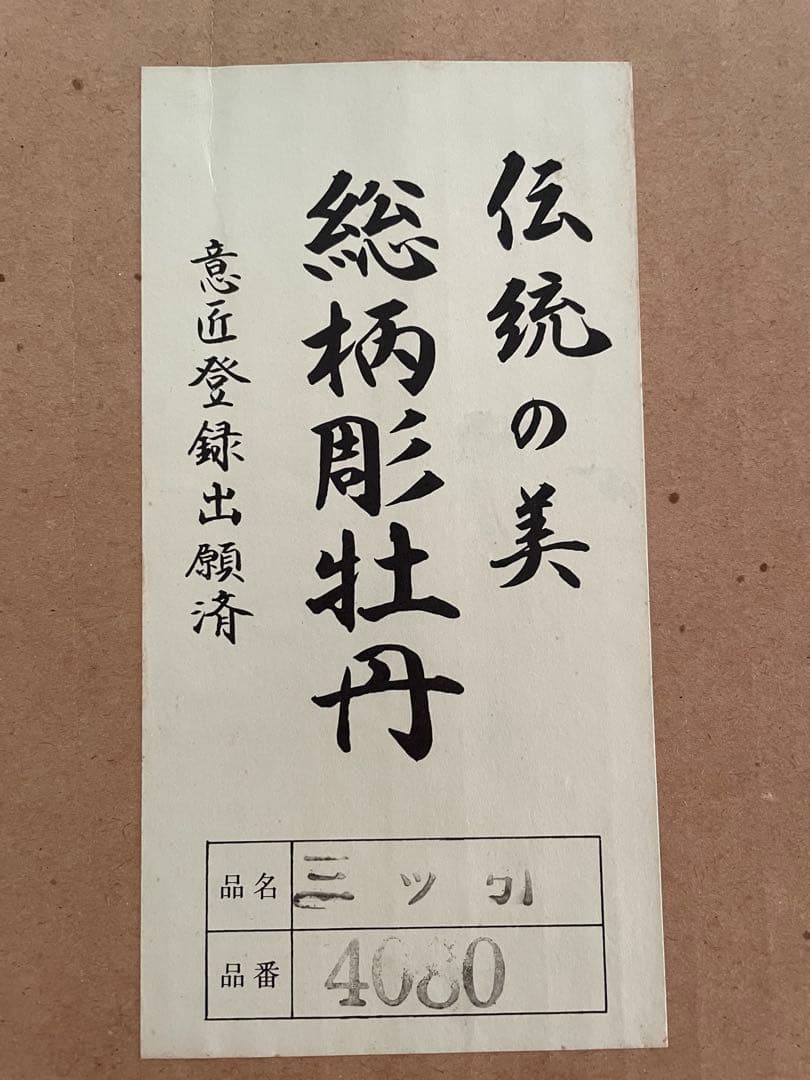 伝統の美
総柄彫牡丹
意匠登録出願済
品名 三ツ引
品番 4080